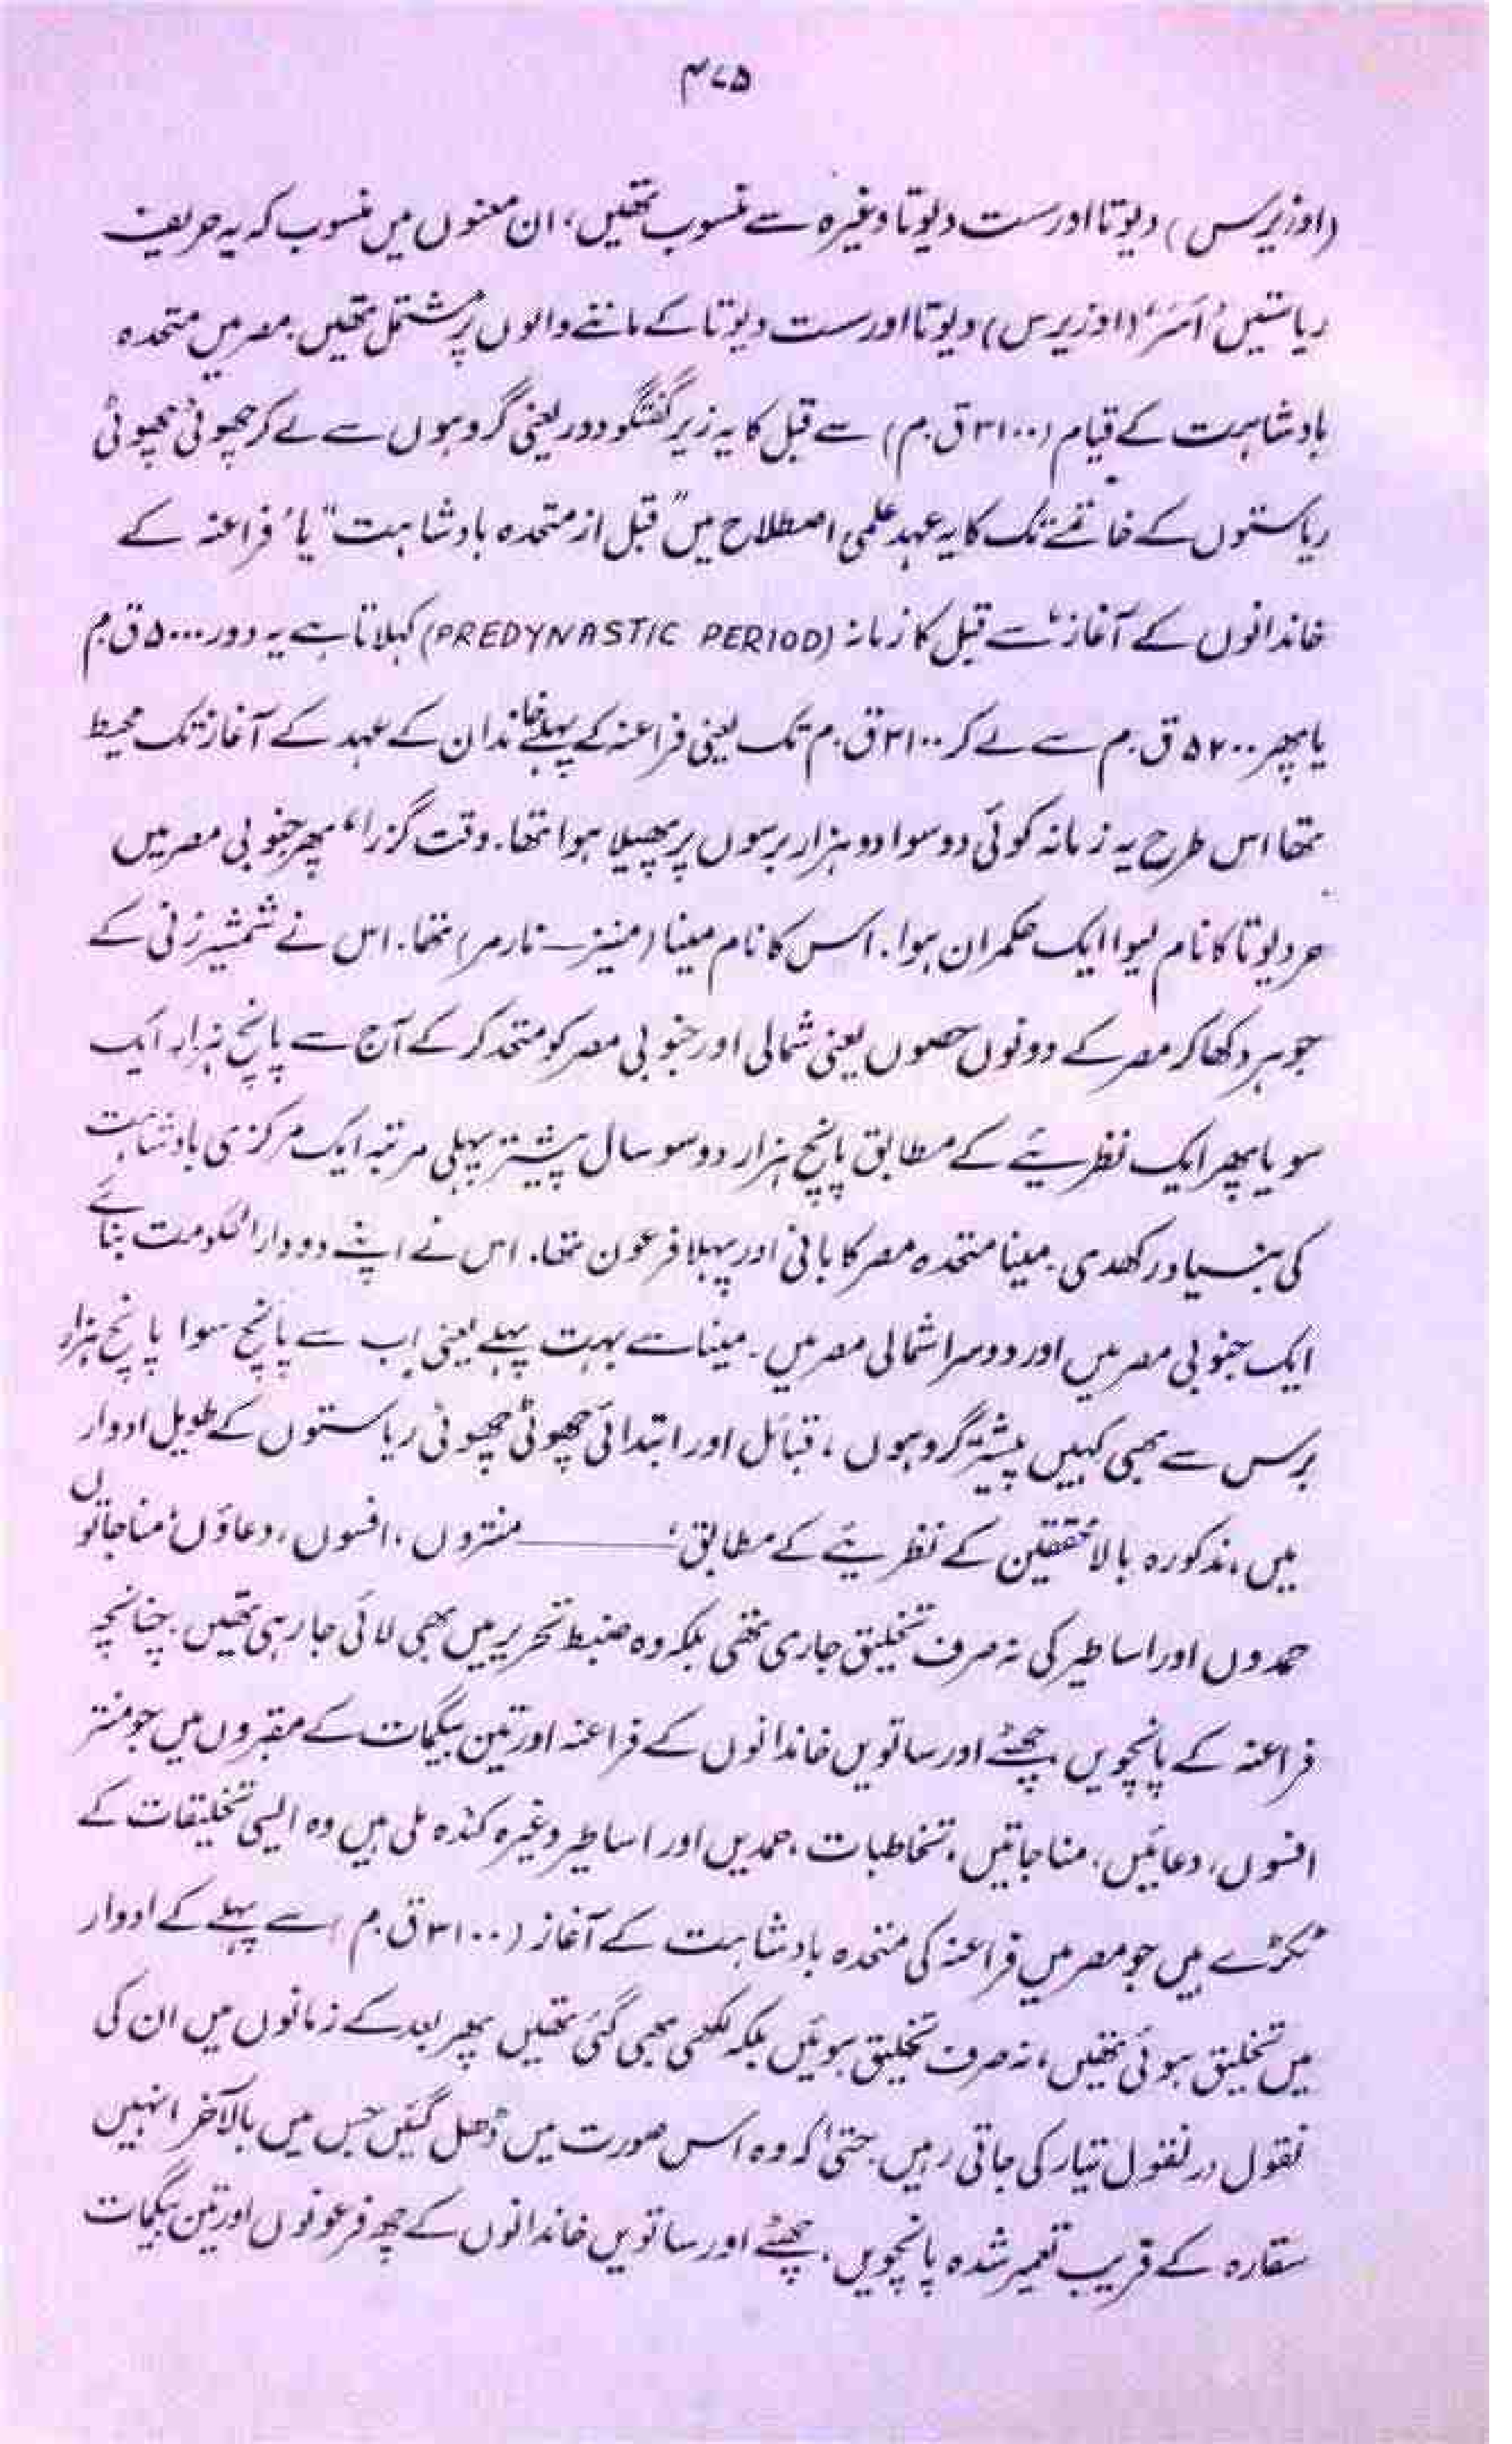 ۴۷۵
(اوزیرس) دیوتا اور ست دیوتا وغیرہ سے منسوب تھیں، ان معنوں میں منسوب کہ یہ حریف
ریاستیں 'اُسَر' (اوزیرس) دیوتا اور ست دیوتا کے ماننے والوں پر مشتمل تھیں۔ مصر میں متحدہ
بادشاہت کے قیام (۳۱۰۰ ق.م) سے قبل کا یہ زیر گفتگو دور یعنی گروہوں سے لے کر چھوٹی چھوٹی
ریاستوں کے خاتمے تک کا یہ عہد علمی اصطلاح میں "قبل از متحدہ بادشاہت" یا 'فراعنہ کے
خاندانوں کے آغاز' سے قبل کا زمانہ (PREDYNASTIC PERIOD) کہلاتا ہے یہ دور ۵۰۰۰ ق.م
یا پھر ۵۲۰۰ ق.م سے لے کر ۳۱۰۰ ق.م تک یعنی فراعنہ کے پہلے خاندان کے عہد کے آغاز تک محیط
تھا اس طرح یہ زمانہ کوئی دو سوا دو ہزار برسوں پر پھیلا ہوا تھا۔ وقت گزرا، پھر جنوبی مصر میں
حر دیوتا کا نام لیوا ایک حکمران ہوا۔ اس کا نام مینا (منیز – نارمر) تھا۔ اس نے شمشیر زنی کے
جوہر دکھا کر مصر کے دونوں حصوں یعنی شمالی اور جنوبی مصر کو متحد کر کے آج سے پانچ ہزار ایک
سو یا پھر ایک نظریئے کے مطابق پانچ ہزار دو سو سال پیشتر پہلی مرتبہ ایک مرکزی بادشاہت
کی بنیاد رکھ دی۔ مینا متحدہ مصر کا بانی اور پہلا فرعون تھا۔ اس نے اپنے دو دارالحکومت بنائے
ایک جنوبی مصر میں اور دوسرا شمالی مصر میں۔ مینا سے بہت پہلے یعنی اب سے پانچ سوا پانچ ہزار
برس سے بھی کہیں پیشتر گروہوں، قبائل اور ابتدائی چھوٹی چھوٹی ریاستوں کے طویل ادوار
میں، مذکورہ بالا محققین کے نظریئے کے مطابق، —— منتروں، افسوں، دعاؤں، مناجاتوں
حمدوں اور اساطیر کی نہ صرف تخلیق جاری تھی بلکہ وہ ضبط تحریر میں بھی لائی جا رہی تھیں۔ چنانچہ
فراعنہ کے پانچویں، چھٹے اور ساتویں خاندانوں کے فراعنہ اور تین بیگمات کے مقبروں میں جو منتر
افسوں، دعائیں، مناجاتیں، تخاطبات، حمدیں اور اساطیر وغیرہ کندہ ملی ہیں وہ ایسی تخلیقات کے
ٹکڑے ہیں جو مصر میں فراعنہ کی متحدہ بادشاہت کے آغاز (۳۱۰۰ ق.م) سے پہلے کے ادوار
میں تخلیق ہوئی تھیں، نہ صرف تخلیق ہوئیں بلکہ لکھی بھی گئی تھیں پھر بعد کے زمانوں میں ان کی
نقول در نقول تیار کی جاتی رہیں۔ حتیٰ کہ وہ اس صورت میں ڈھل گئیں جس میں بالآخر انہیں
سقارہ کے قریب تعمیر شدہ پانچویں، چھٹے اور ساتویں خاندانوں کے چھ فرعونوں اور تین بیگمات